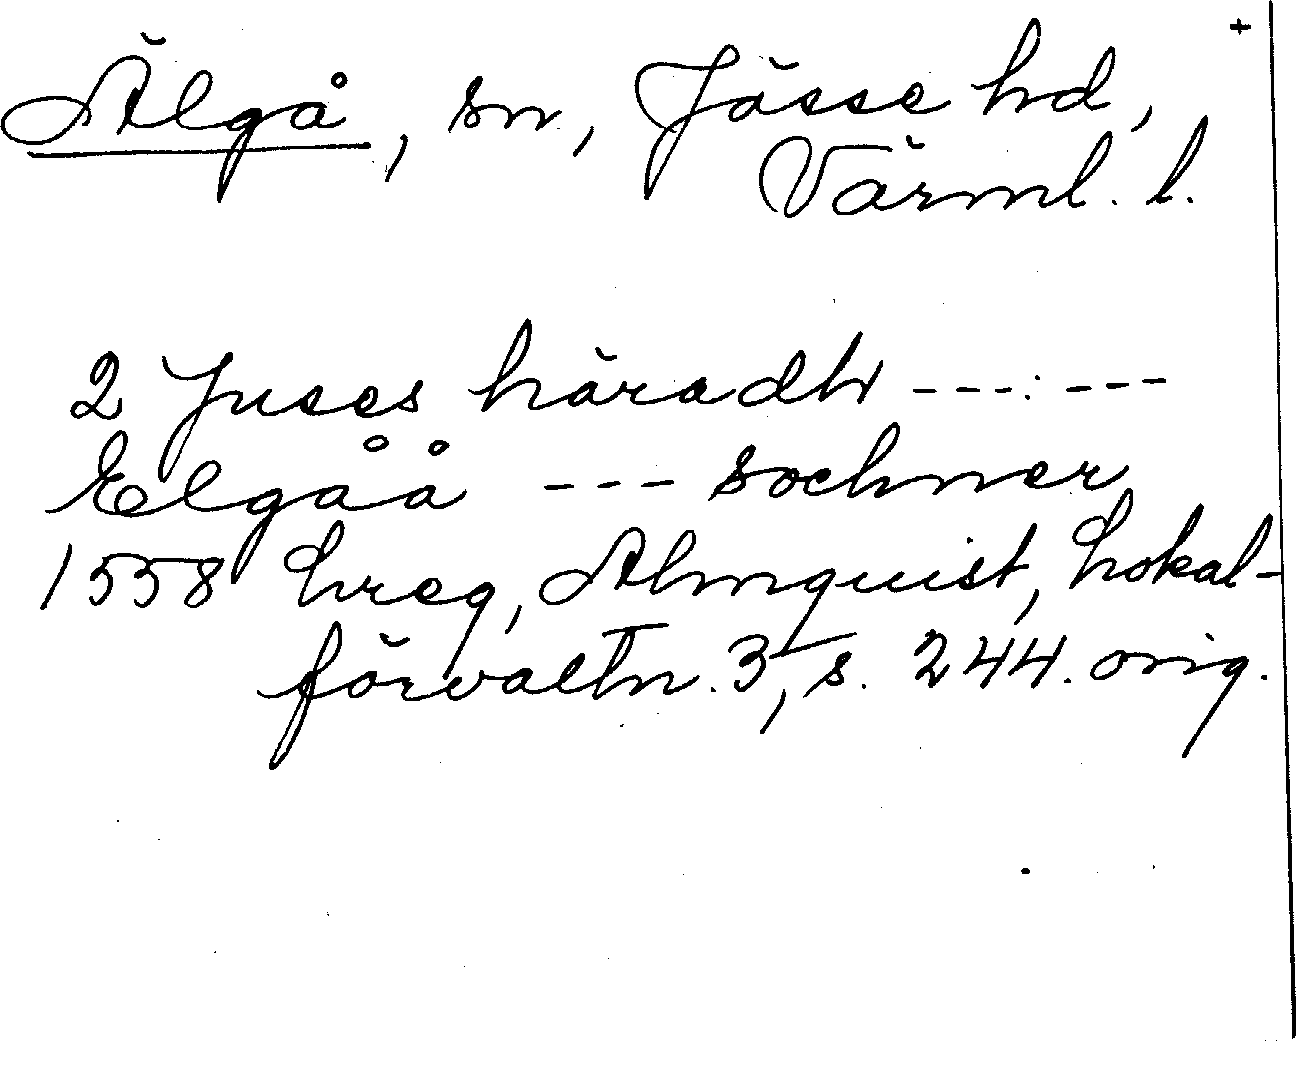 +
Älgå, sn, Jösse hd,
Värml. l.
2 Juses häradh ---:---
Elgåå --- sochner
1558 hreg, Almquist, Lokal-
förvaltn. 3, s. 244. orig.